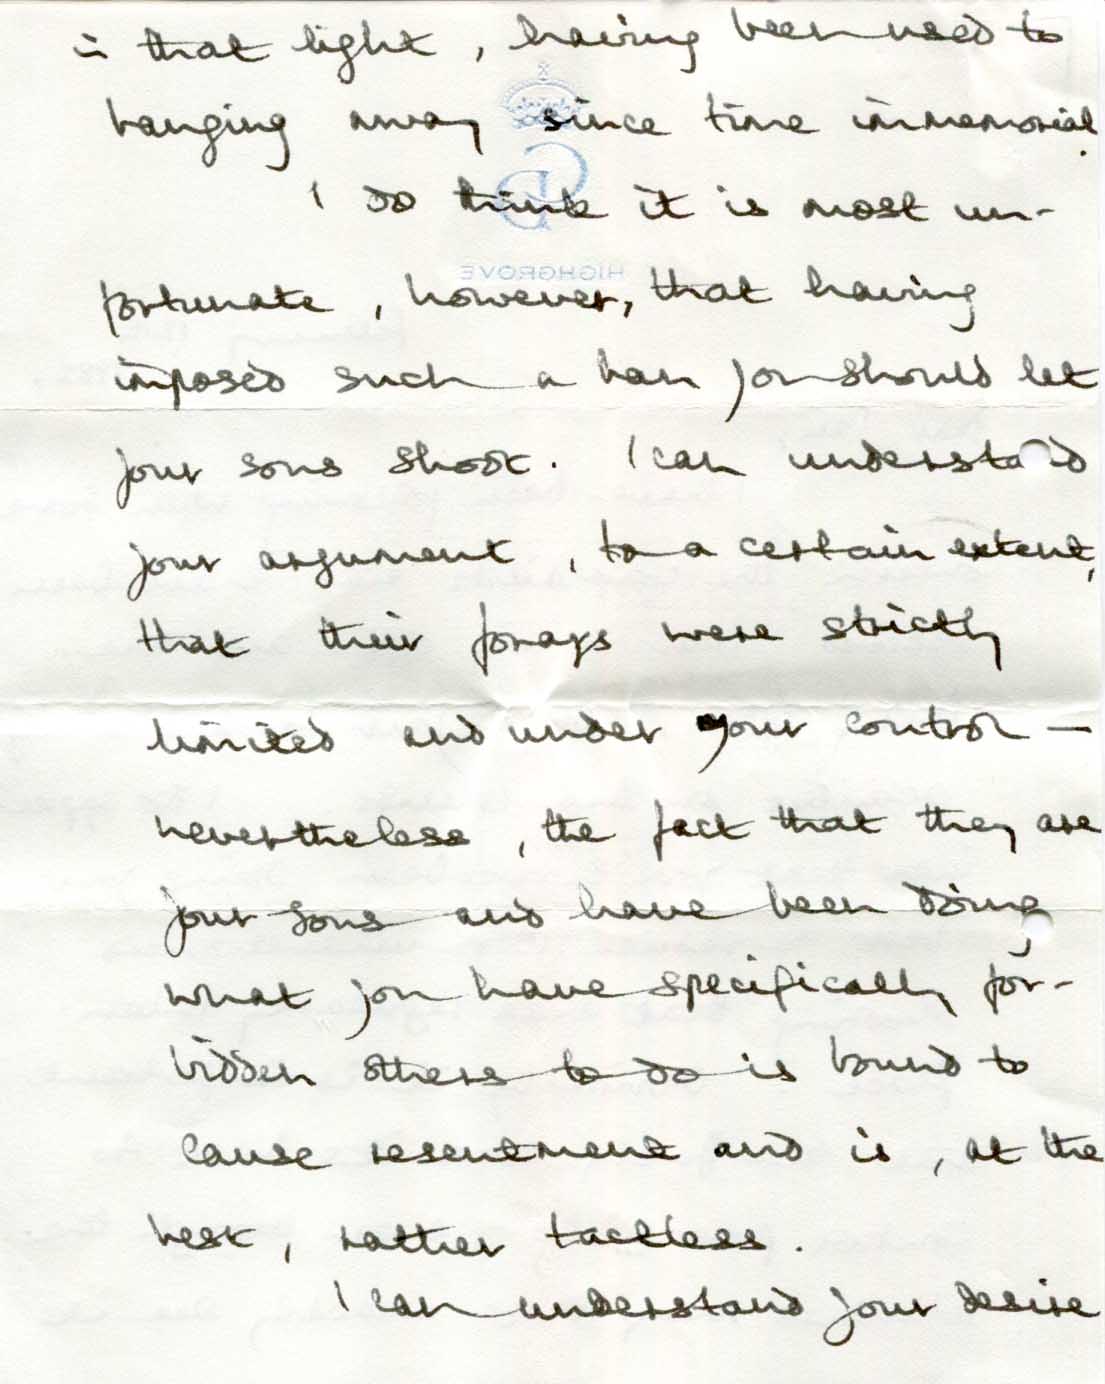 in that light, having been used to
banging away since time immemorial.
I do think it is most un-
HIGHGROVE
fortunate, however, that having
imposed such a ban you should let
your sons shoot. I can understand
your argument, to a certain extent,
that their forays were strictly
limited and under your control —
nevertheless, the fact that they are
your sons and have been doing
what you have specifically for-
bidden others to do is bound to
cause resentment and is, at the
best, rather tactless.
I can understand your desire